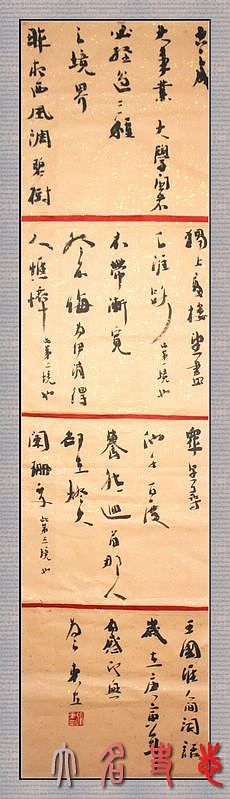 古今之成
大事業大學問者
必經過三種
之境界
昨夜西風凋碧樹
獨上高樓望盡
天涯路此第一境也
衣帶漸寬
終不悔為伊消得
人憔悴此第二境也
衆里尋
他千百度
驀然迴首那人
卻在燈火
闌珊處此第三境也
王國維人間詞話
歲在
有感而興
為之東丘